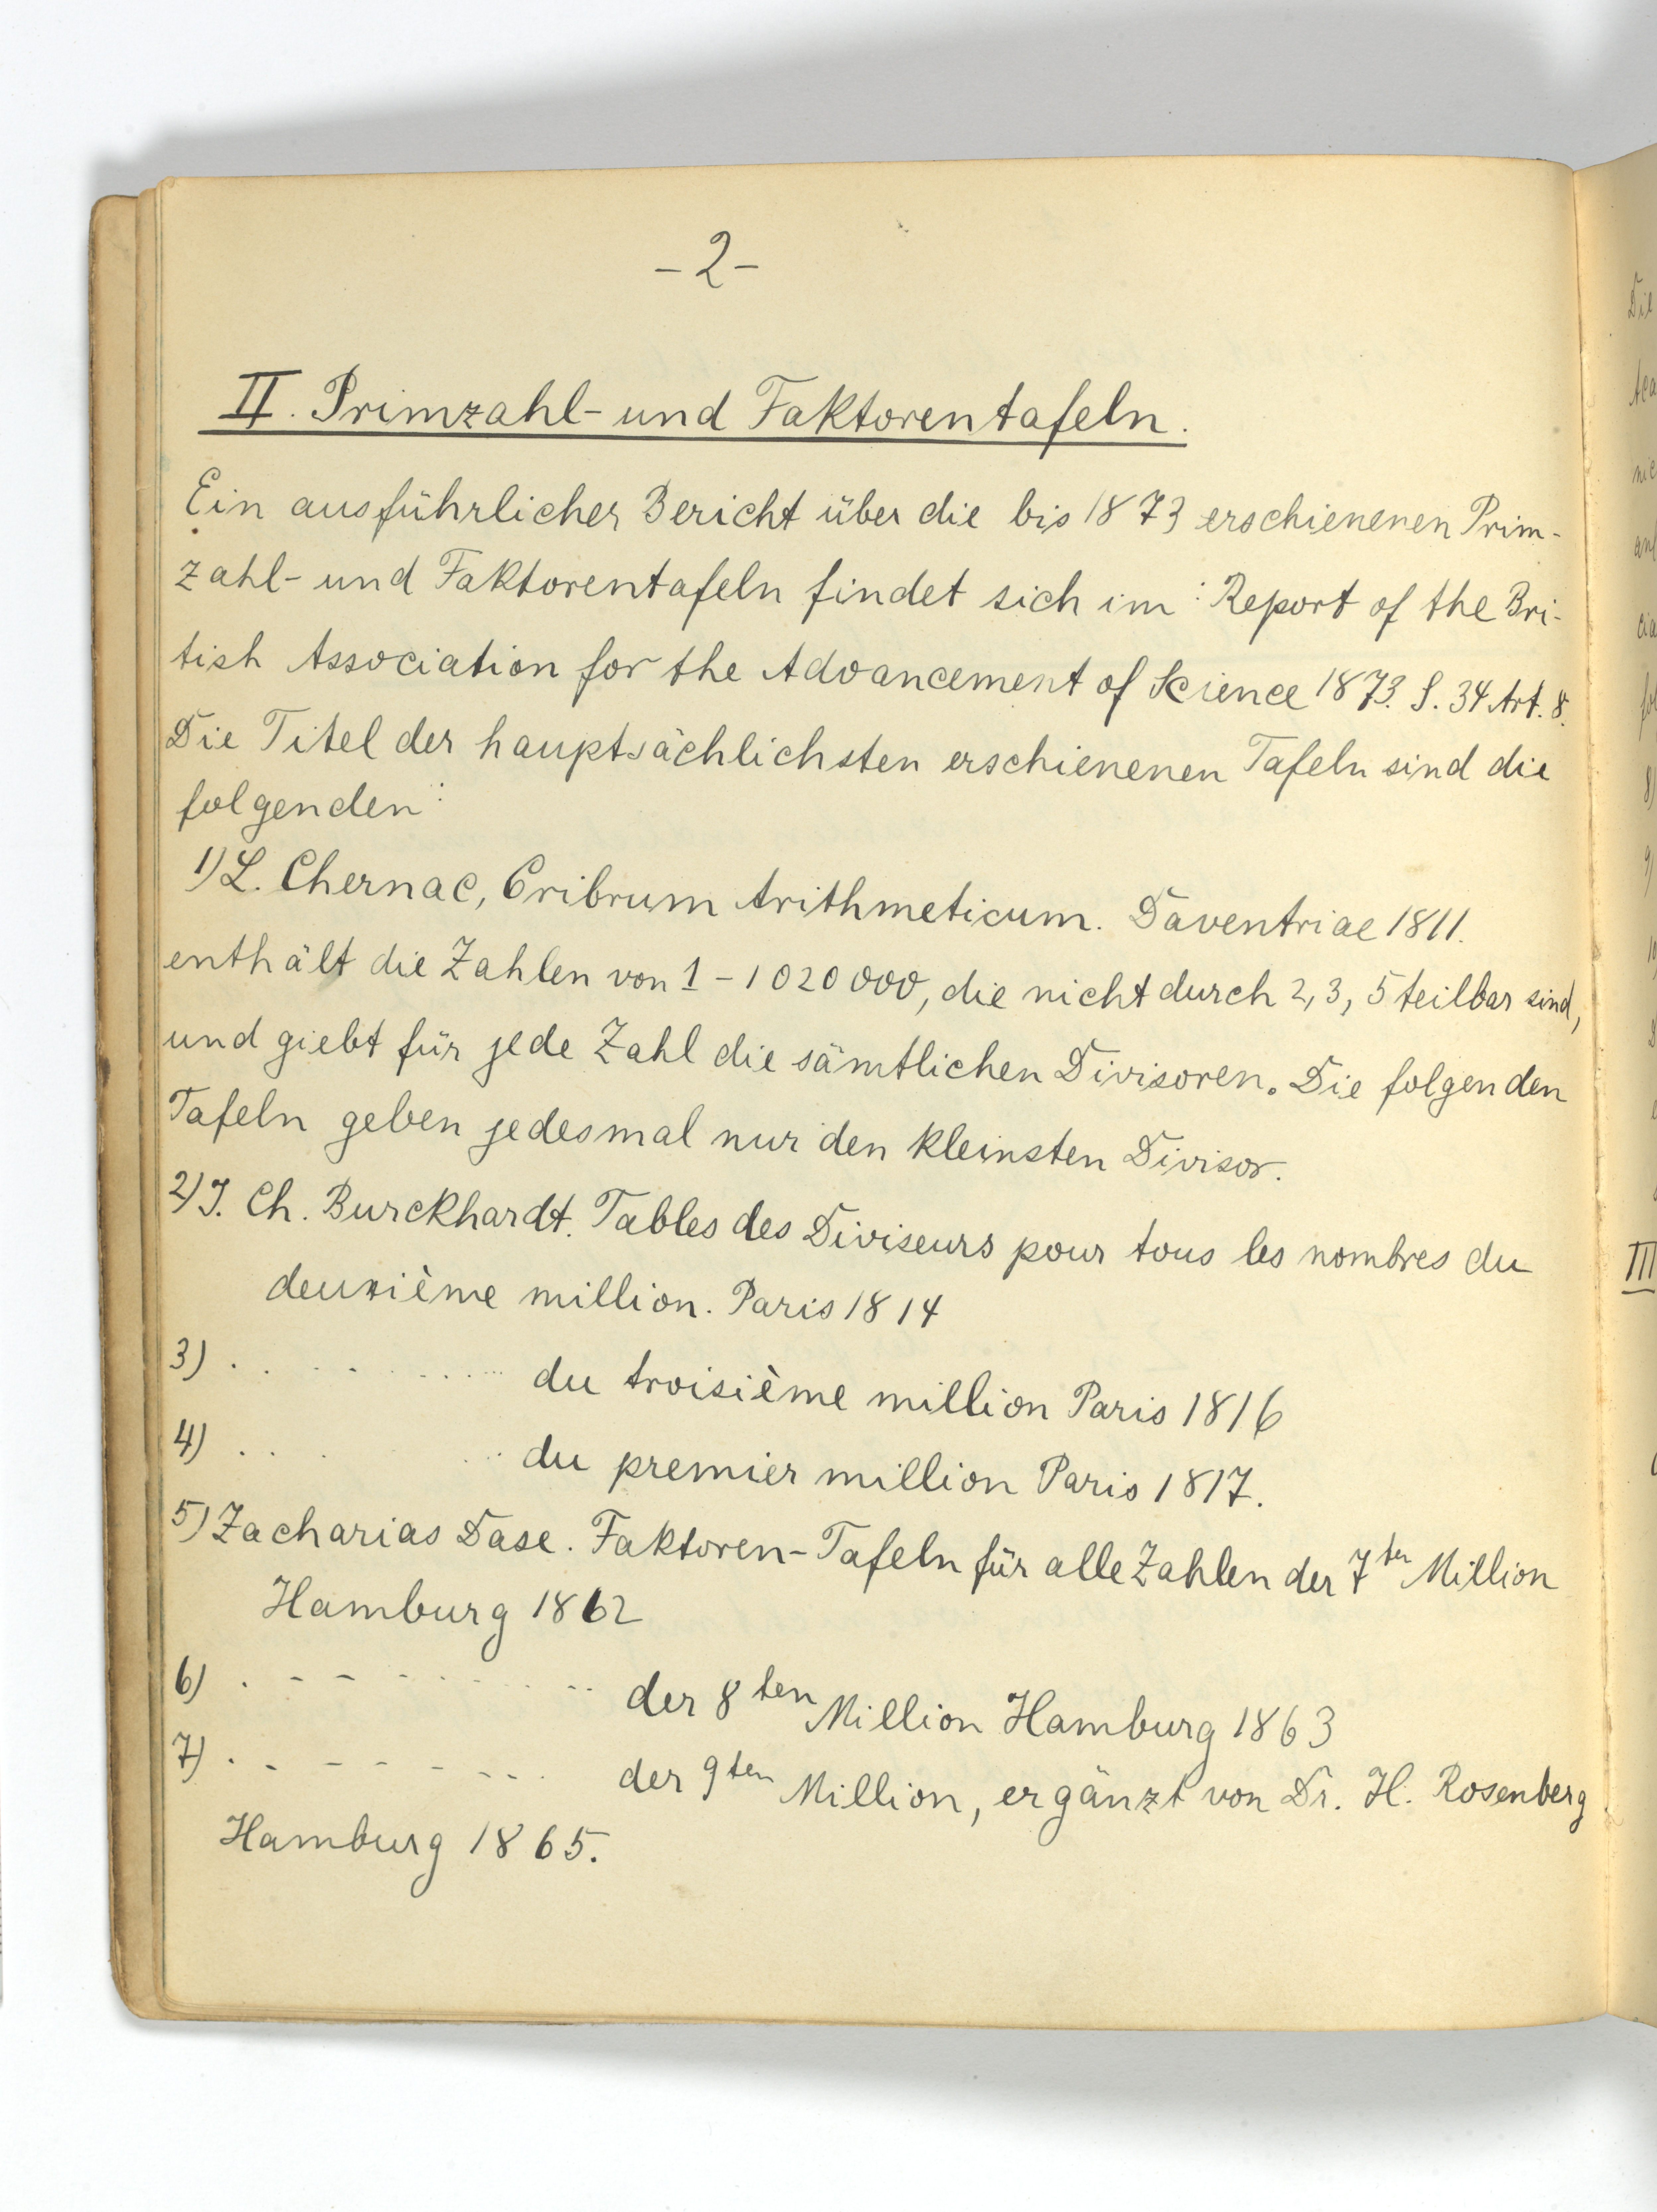 - 2 -
II. Primzahl- und Faktorentafeln.
Ein ausführlicher Bericht über die bis 1873 erschienenen Prim-
zahl- und Faktorentafeln findet sich im: Report of the Bri-
tish Association for the Advancement of Science 1873. S. 34 Art. 8.
Die Titel der hauptsächlichsten erschienenen Tafeln sind die
folgenden:
1) L. Chernac, Cribrum Arithmeticum. Daventriae 1811.
enthält die Zahlen von 1 - 1 020 000, die nicht durch 2, 3, 5 teilbar sind,
und giebt für jede Zahl die sämtlichen Divisoren. Die folgenden
Tafeln geben jedesmal nur den kleinsten Divisor.
2) J. Ch. Burckhardt. Tables des Diviseurs pour tous les nombres du
deuxième million. Paris 1814
3) . . . . . . . . . du troisième million Paris 1816
4) . . . . . du premier million Paris 1817.
5) Zacharias Dase. Faktoren-Tafeln für alle Zahlen der 7ten Million
Hamburg 1862
6) . - - - - . . . . der 8ten Million Hamburg 1863
7) . - - - - - - . . . der 9ten Million, ergänzt von Dr. H. Rosenberg
Hamburg 1865.
Die
nic
8)
9)
III